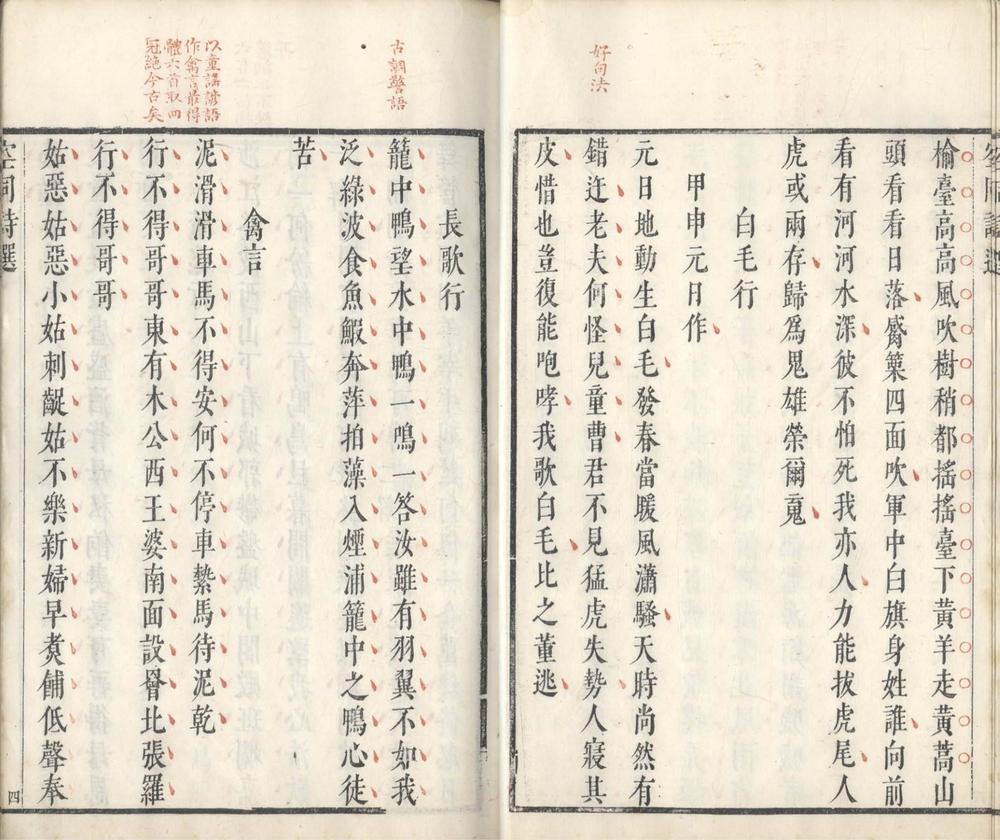 好句法
榆臺高高風吹樹稍都搖搖臺下黃羊走黃蒿山
頭看看日落觱篥四面吹軍中白旗身姓誰向前
看有河河水深彼不怕死我亦人力能拔虎尾人
虎或兩存歸為鬼雄榮爾䰟
白毛行
甲申元日作
元日地動生白毛發春當暖風瀟騷天時尚然有
錯迕老夫何怪兒童曹君不見猛虎失勢人寢其
皮惜也豈復能咆哮我歌白毛比之董逃
古調警語
以童謠諺語
作禽言最得
體六首取四
冠絕今古矣
長歌行
籠中鴨望水中鴨一鳴一答汝雖有羽翼不如我
泛綠波食魚鰕奔萍拍藻入煙浦籠中之鴨心徒
苦
禽言
泥滑滑車馬不得安何不停車縶馬待泥乾
行不得哥哥東有木公西王婆南面設罾北張羅
行不得哥哥
姑惡姑惡小姑刺齪姑不樂新婦早煑餔低聲奉
空同詩選
四